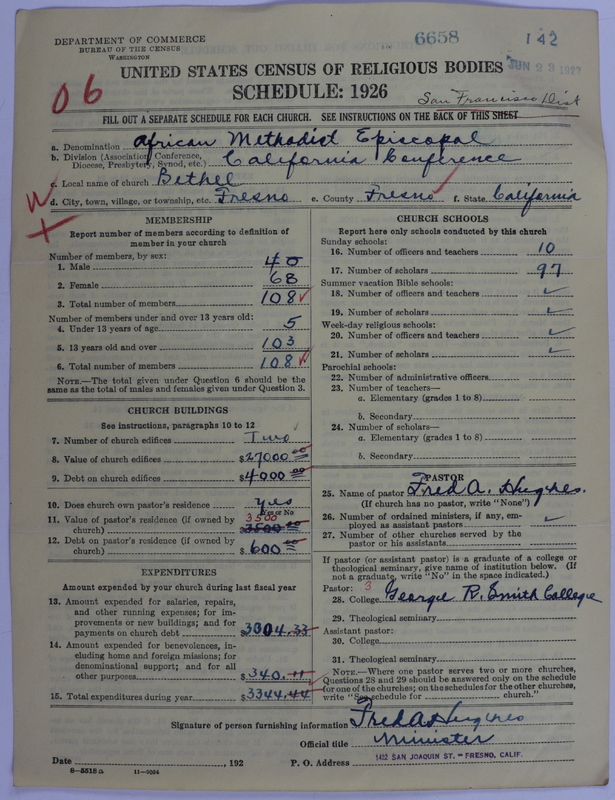 DEPARTMENT OF COMMERCE
BUREAU OF THE CENSUS
WASHINGTON
6658
142
JUN 23 1927
UNITED STATES CENSUS OF RELIGIOUS BODIES
SCHEDULE: 1926
06
San Francisco Dist
FILL OUT A SEPARATE SCHEDULE FOR EACH CHURCH. SEE INSTRUCTIONS ON THE BACK OF THIS SHEET
a. Denomination African Methodist Episcopal
b. Division (Association, Conference, Diocese, Presbytery, Synod, etc.) California Conference
c. Local name of church Bethel
d. City, town, village, or township, etc. Fresno e. County Fresno f. State California
MEMBERSHIP
Report number of members according to definition of
member in your church
Number of members, by sex:
1. Male 40
2. Female 68
3. Total number of members 108
Number of members under and over 13 years old:
4. Under 13 years of age 5
5. 13 years old and over 103
6. Total number of members 108
NOTE.—The total given under Question 6 should be
same as the total of males and females given under Question 3.
CHURCH BUILDINGS
See instructions, paragraphs 10 to 12
7. Number of church edifices Two
8. Value of church edifices $27000 00
9. Debt on church edifices $4000 00
10. Does church own pastor's residence yes
Yes or No
3500
11. Value of pastor's residence (if owned by
church) $3500 00
12. Debt on pastor's residence (if owned by
church) $600 00
EXPENDITURES
Amount expended by your church during last fiscal year
13. Amount expended for salaries, repairs,
and other running expenses; for im-
provements or new buildings; and for
payments on church debt $3004.33
14. Amount expended for benevolences, in-
cluding home and foreign missions; for
denominational support; and for all
other purposes $340.11
15. Total expenditures during year $3344.44
CHURCH SCHOOLS
Report here only schools conducted by this church
Sunday schools:
16. Number of officers and teachers 10
17. Number of scholars 97
Summer vacation Bible schools:
18. Number of officers and teachers ✓
19. Number of scholars ✓
Week-day religious schools:
20. Number of officers and teachers ✓
21. Number of scholars ✓
Parochial schools:
22. Number of administrative officers
23. Number of teachers—
a. Elementary (grades 1 to 8)
b. Secondary
24. Number of scholars—
a. Elementary (grades 1 to 8)
b. Secondary
PASTOR
25. Name of pastor Fred A. Hughes.
(If church has no pastor, write "None")
26. Number of ordained ministers, if any, em-
ployed as assistant pastors ✓
27. Number of other churches served by the
pastor or his assistants
If pastor (or assistant pastor) is a graduate of a college or
theological seminary, give name of institution below. (If
not a graduate, write "No" in the space indicated.)
Pastor: 3
28. College George R. Smith College
29. Theological seminary
Assistant pastor:
30. College
31. Theological seminary
NOTE.—Where one pastor serves two or more churches,
Questions 28 and 29 should be answered only on the schedule
for one of the churches; on the schedules for the other churches,
write "See schedule for church."
Signature of person furnishing information Fred A Hughes
Official title Minister
Date , 192 P. O. Address 1422 SAN JOAQUIN ST. - FRESNO, CALIF.
11-9024